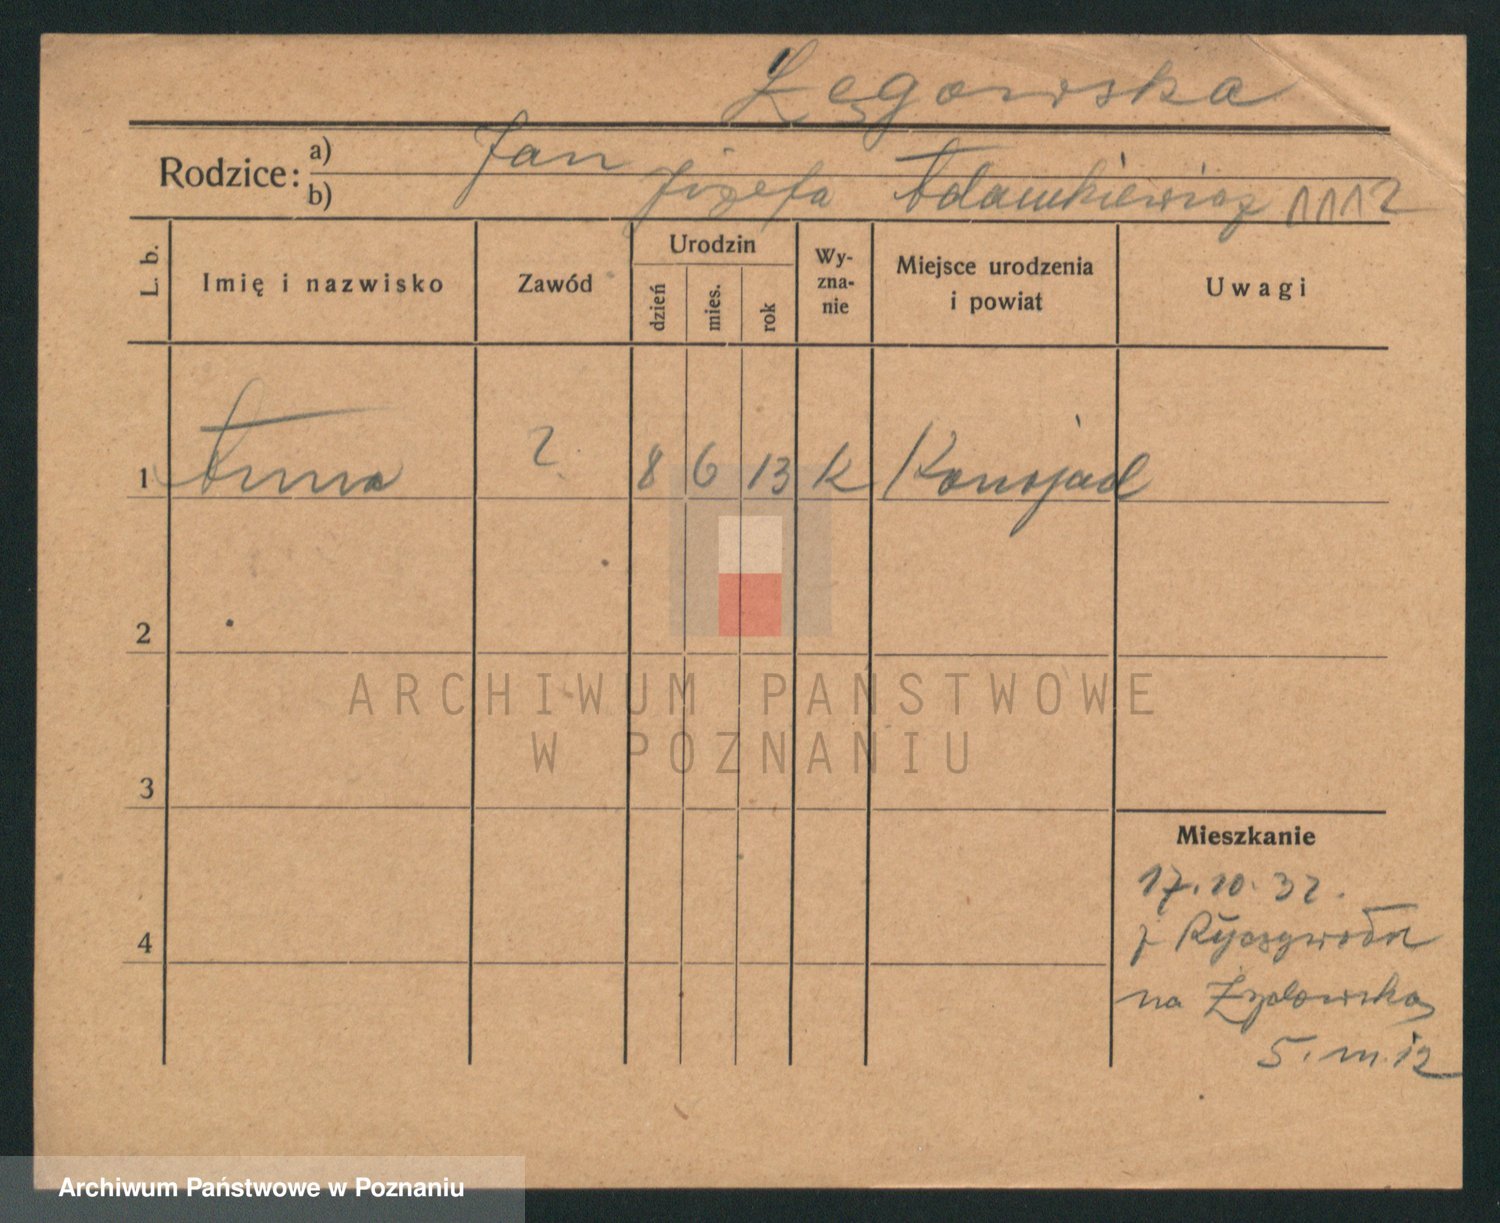 Łęgowska
Rodzice: a) Jan
b) Józefa Adamkiewicz
L. b.
Imię i nazwisko
Zawód
Urodzin
dzień
mies.
rok
Wy-
zna-
nie
Miejsce urodzenia
i powiat
Uwagi
1 Anna ? 8 6 13 k Konojad
2
ARCHIWUM PAŃSTWOWE
W POZNANIU
3
Mieszkanie
17.10.32.
z Ryczywołu
na Żydowską
5. m. 12
4
Archiwum Państwowe w Poznaniu